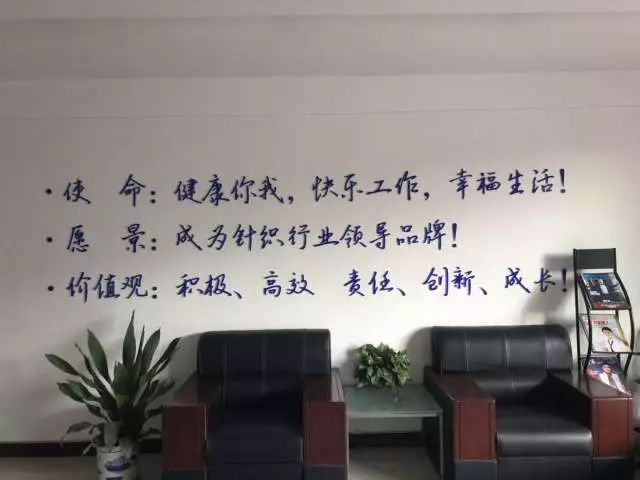 ·使 命：健康你我，快乐工作，幸福生活！
·愿 景：成为针织行业领导品牌！
·价值观：积极、高效 责任、创新、成长！